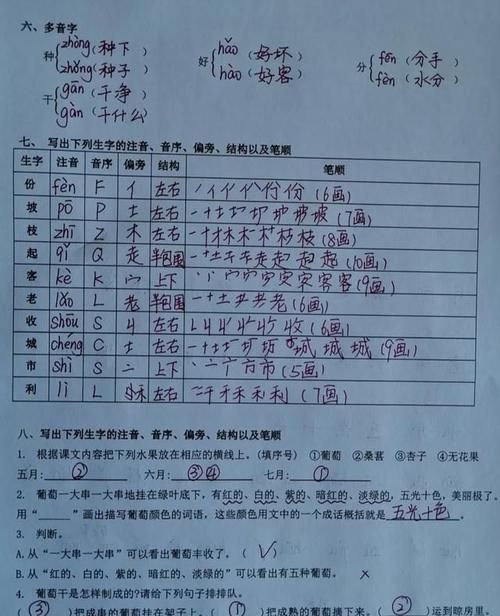 六、多音字
种 zhòng(种下) 好 hǎo(好坏) 分 fēn(分手)
zhǒng(种子) hào(好客) fèn(水分)
干 gān(干净)
gàn(干什么)
七、写出下列生字的注音、音序、偏旁、结构以及笔顺
生字 注音 音序 偏旁 结构 笔顺
份 fèn F 亻 左右 (6画)
坡 pō P 土 左右 (7画)
枝 zhī Z 木 左右 (8画)
起 qǐ Q 走 半包围 (10画)
客 kè K 宀 上下 (9画)
老 lǎo L 老 半包围 (6画)
收 shōu S 左右 (6画)
城 chéng C 土 左右 (9画)
市 shì S 上下 (5画)
利 lì L 左右 (7画)
八、写出下列生字的注音、音序、偏旁、结构以及笔顺
1. 根据课文内容把下列水果放在相应的横线上。(填序号) ①葡萄 ②桑葚 ③杏子 ④无花果
五月: ② 六月: ③④ 七月: ①
2. 葡萄一大串一大串地挂在绿叶底下,有红的、白的、紫的、暗红的、淡绿的,五光十色,美丽极了。
用“______”画出描写葡萄颜色的词语,这些颜色用文中的一个成语概括就是 五光十色 。
3. 判断。
A. 从“一大串一大串”可以看出葡萄丰收了。( √ )
B. 从“红的、白的、紫的、暗红的、淡绿的”可以看出有五种葡萄。 ×
4. 葡萄干是怎样制成的?请给下列句子排排队。
( ③ )把成串的葡萄挂在架子上。( ① )把成熟的葡萄摘下来。( ② )运到晾房里。